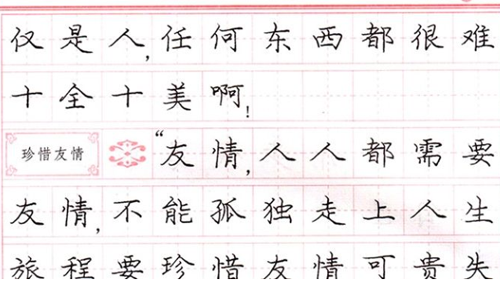 仅是人,任何东西都很难
十全十美啊!
珍惜友情 “友情,人人都需要
友情,不能孤独走上人生
旅程要珍惜友情可贵失